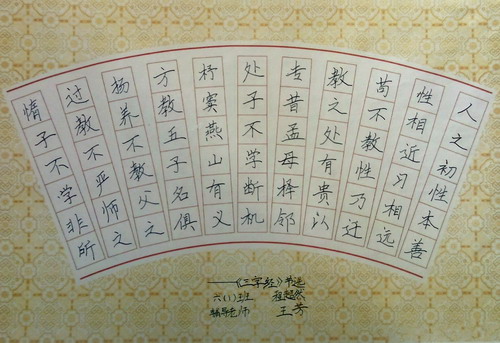 人之初性本善
性相近习相远
苟不教性乃迁
教之处有贵以
专昔孟母择邻
处子不学断机
杼窦燕山有义
方教五子名俱
扬养不教父之
过教不严师之
惰子不学非所
——《三字经》节选
六（1）班 程超然
辅导老师 王芳